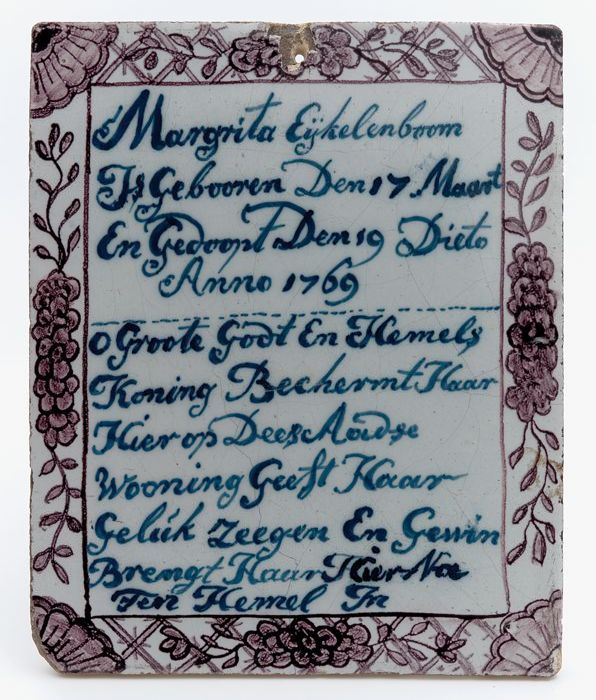 Margrita Eÿkelenboom
Is Gebooren Den 17 Maart
En Gedoopt Den 19 Dieto
Anno 1769
O Groote Godt En Hemels
Koning Bechermt Haar
Hier op Dees Aadse
Wooning Geeft Haar
Geluk Zeegen En Gewin
Brengt Haar Hier Na
Ten Hemel In